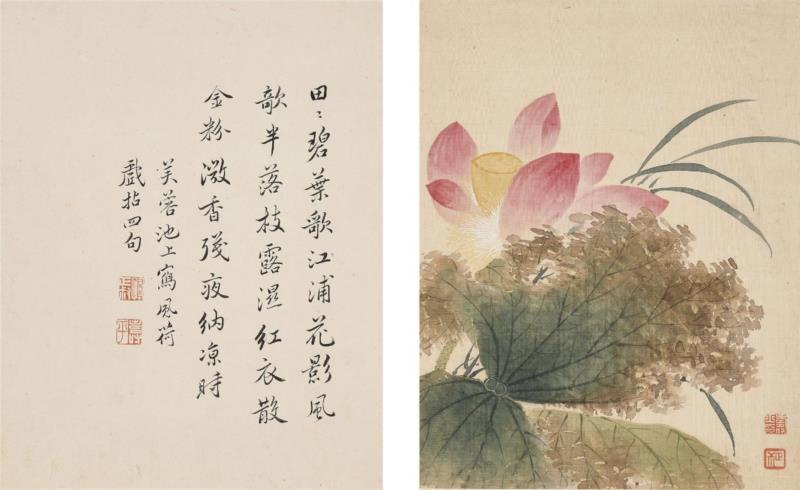 田〻碧葉歌江浦花影風
欹半落枝露濕紅衣散
金粉微香殘夜納涼時
芙蓉池上寫風荷
戲拈四句